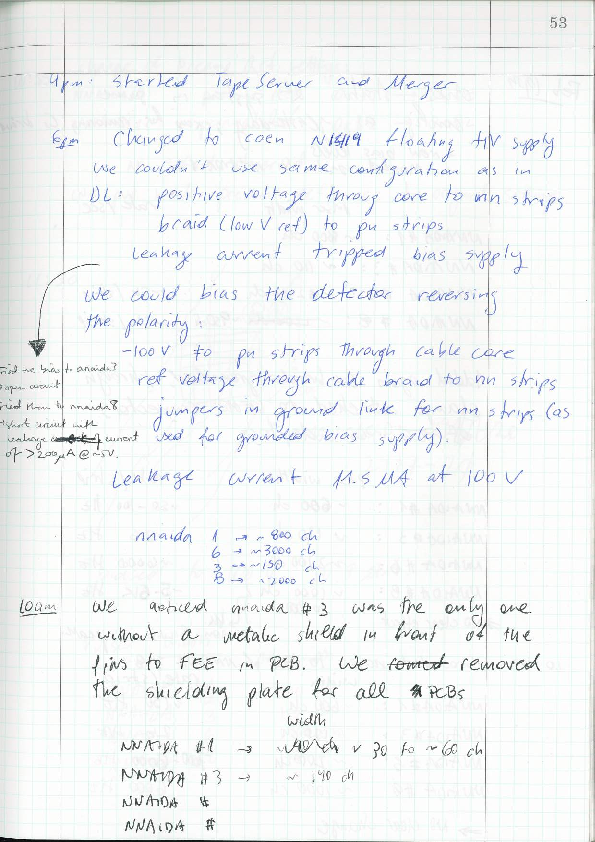 53
4pm: Started TapeServer and Merger
6pm Changed to caen N1419 floating HV supply
We couldn't use same configuration as in
DL: positive voltage throug core to nn strips
braid (low V ref) to pn strips
Leakage current tripped bias supply
We could bias the detector reversing
the polarity:
-100V to pn strips through cable core
ref voltage through cable braid to nn strips
jumpers in ground link for nn strips (as
used for grounded bias supply).
bias to nnaida3
open circuit
them to nnaida8
short circuit with
leakage current
of >200µA @~5V.
Leakage current 11.5 µA at 100V
nnaida 1 → ~800 ch
6 → ~3000 ch
3 → ~150 ch
8 → ~2000 ch
10am We noticed nnaida #3 was the only one
without a metalic shield in front of the
pins to FEE in PCB. We removed
the shielding plate for all PCBs
width
NNAIDA #1 → 30 to ~60 ch
NNAIDA #3 → ~ 140 ch
NNAIDA #
NNAIDA #